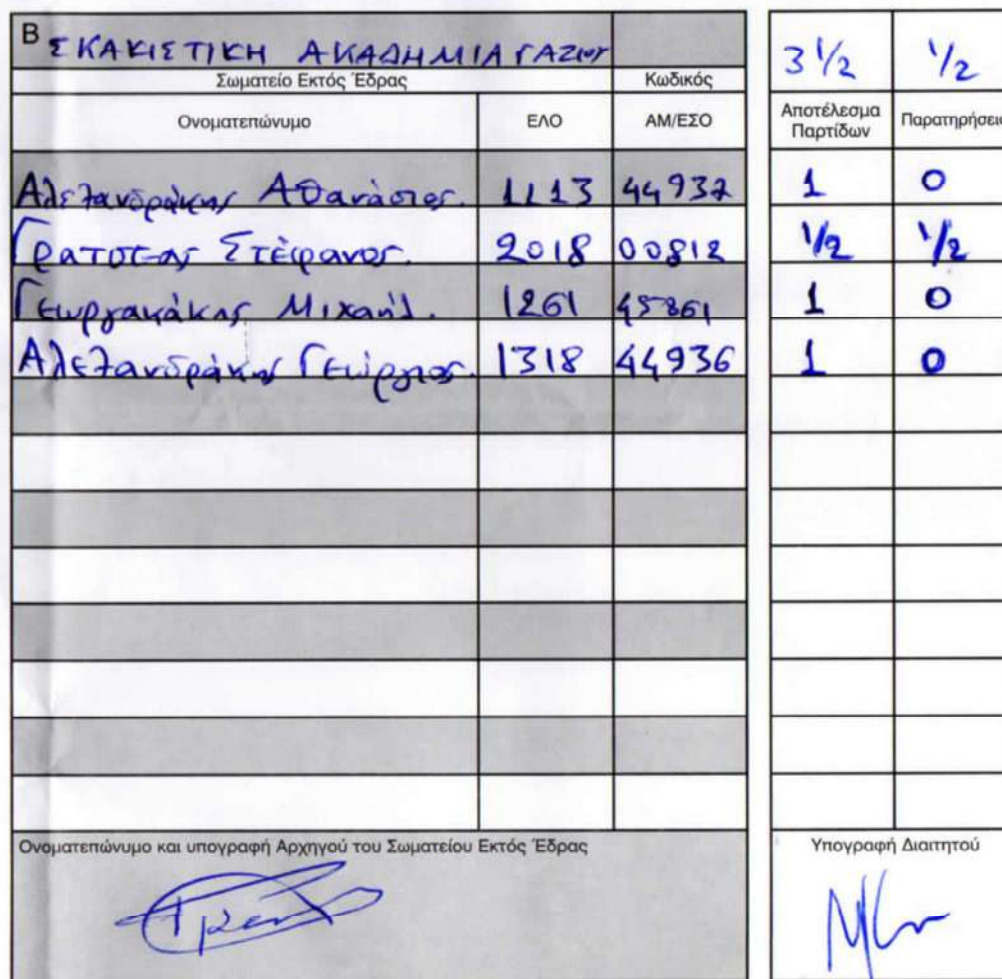 Β ΣΚΑΚΙΣΤΙΚΗ ΑΚΑΔΗΜΙΑ ΓΑΖΙΟΥ 3 1/2 1/2
Σωματείο Εκτός Έδρας Κωδικός
Ονοματεπώνυμο ΕΛΟ ΑΜ/ΕΣΟ Αποτέλεσμα Παρτίδων Παρατηρήσεις
Αλεξανδράκης Αθανάσιος. 1113 44937 1 0
Στέφανος. 2018 00812 1/2 1/2
Γεωργακάκης Μιχαήλ. 1261 45861 1 0
Αλεξανδράκης Γεώργιος. 1318 44936 1 0
Ονοματεπώνυμο και υπογραφή Αρχηγού του Σωματείου Εκτός Έδρας Υπογραφή Διαιτητού